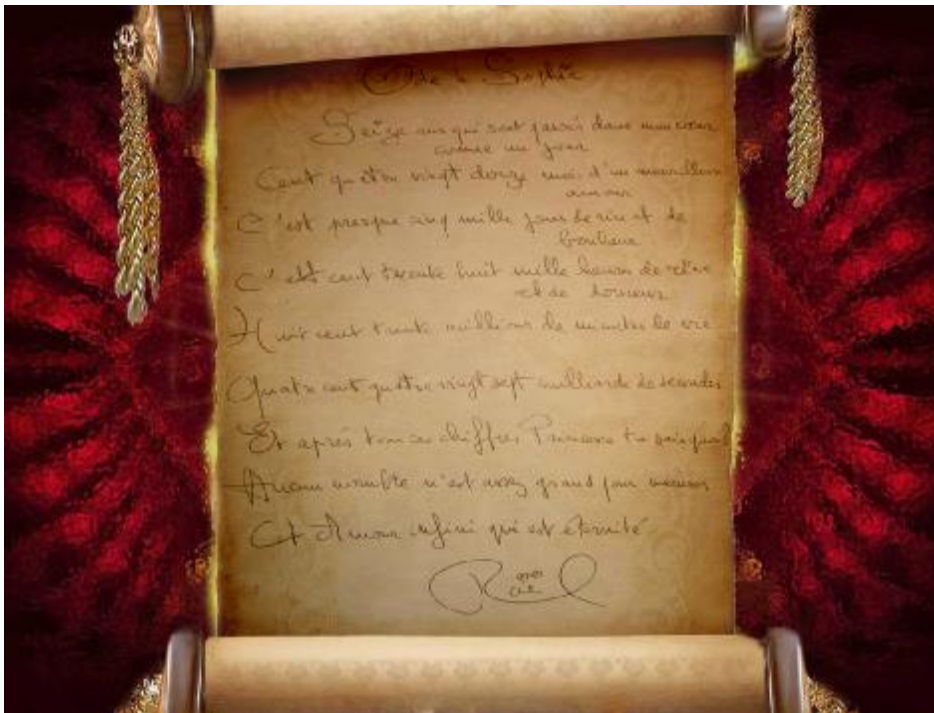 Ode à Sophie
Seize ans qui sont passés dans mon cœur
comme un jour
Cent quatre vingt douze mois d'un merveilleux
amour
C'est presque cinq mille jours de rire et de
bonheur
C'est cent trente huit mille heures de rêve
et de
Huit cent trente millions de minutes de vie
Quatre cent quatre vingt sept milliards de secondes
Et après tous ces chiffres Princesse tu
Aucun nombre n'est assez grand pour mesurer
Cet Amour infini qui est éternité